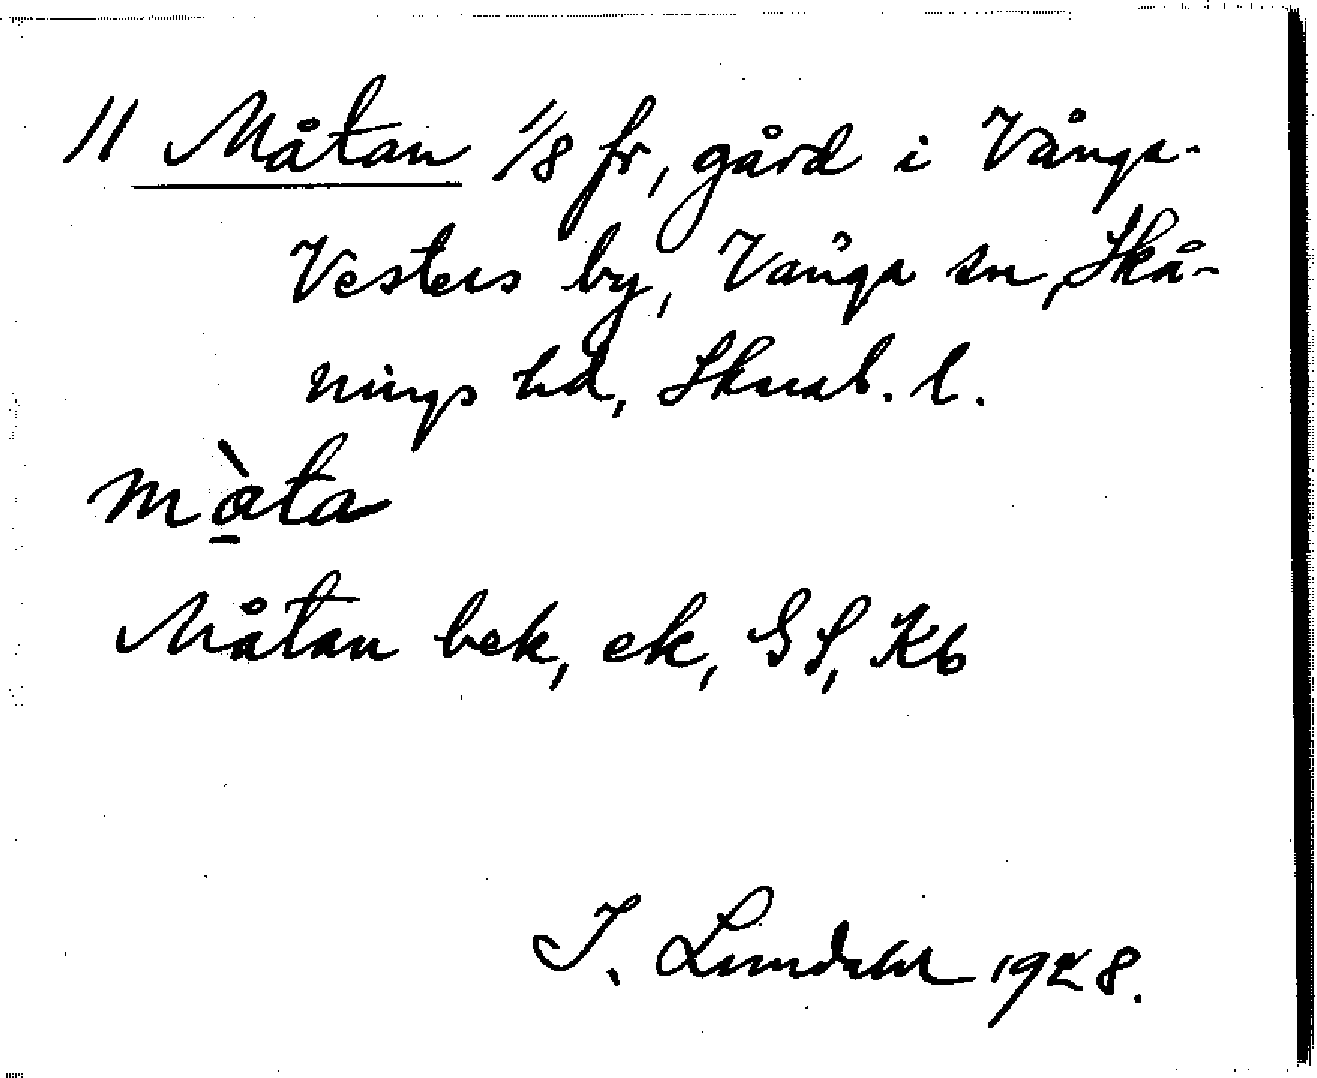 11 Måtan 1/8 fr, gård i Vånga-
Vesters by, Vånga sn, Skå-
nings hd, Skarab. l.
mὰ̱ta
Måtan bek, ek, GS, Kb
I. Lundahl 1928.